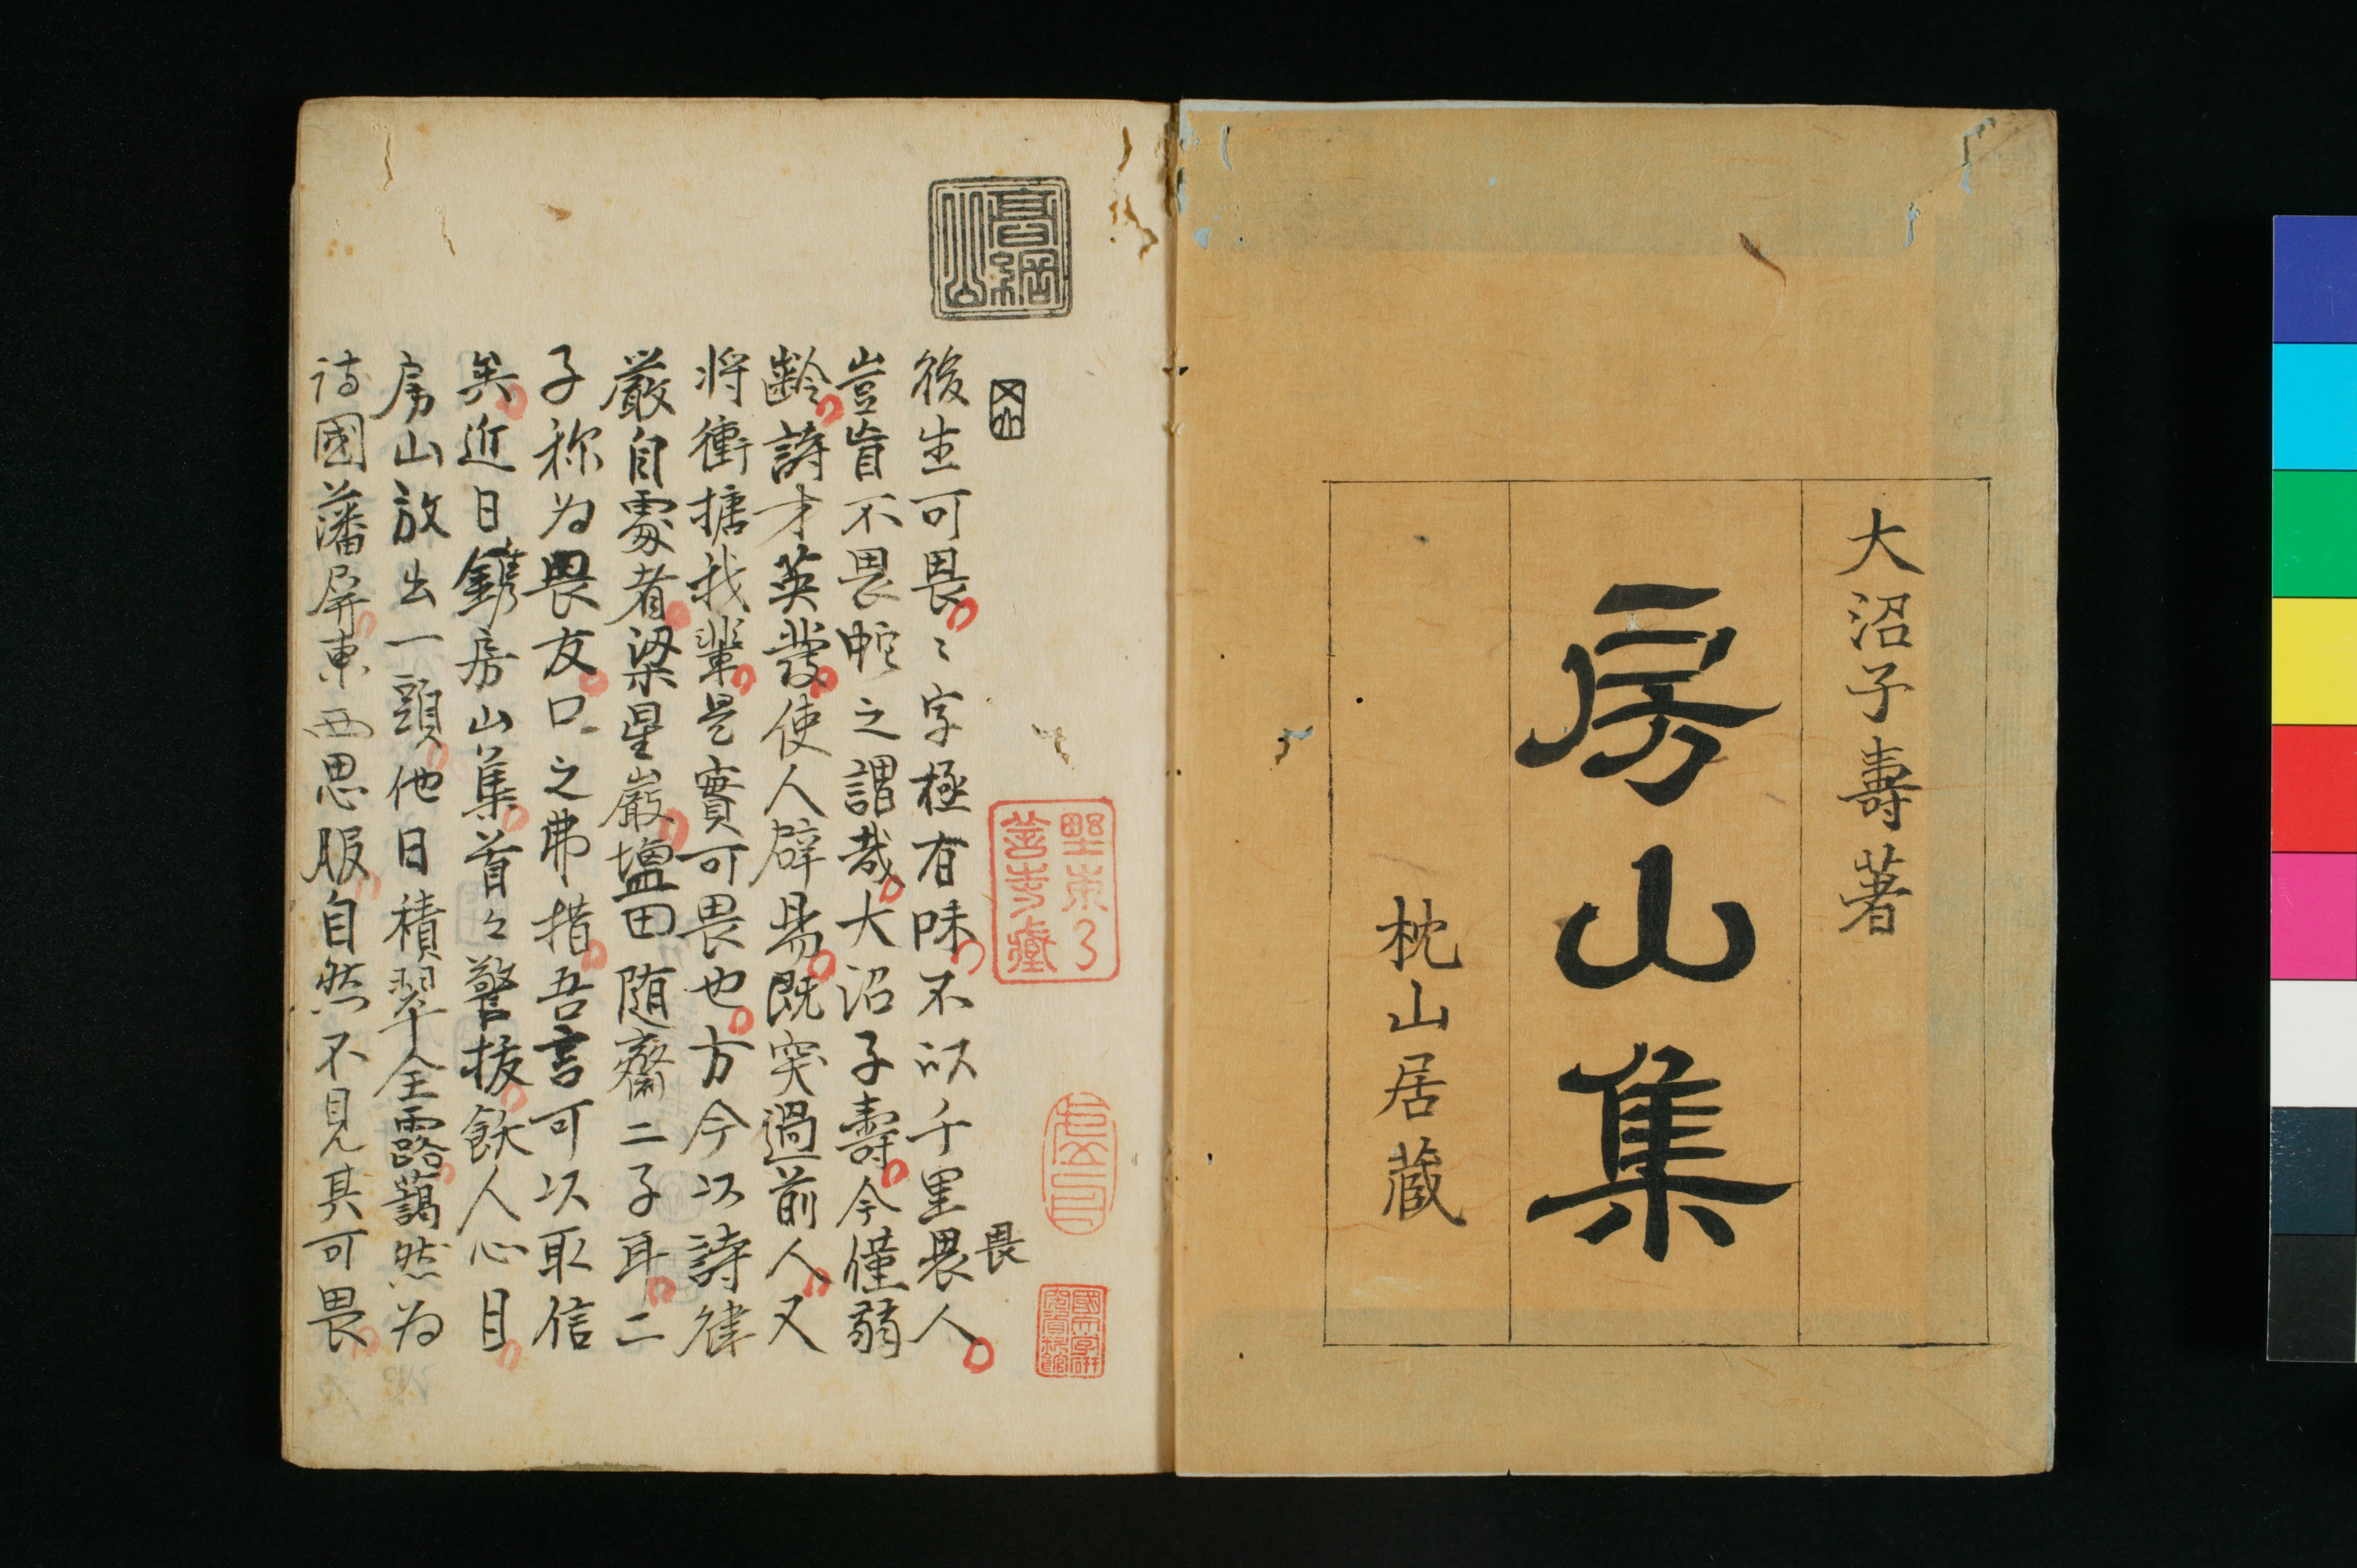 大沼子壽著
房山集
枕山居蔵
後生可畏〻字極有味不以千里畏人
畏
豈盲不畏蛇之謂哉大沼子壽今僅弱
齡詩才英發使人辟易既突過前人又
将衝搪我輩是實可畏也方今以詩律
嚴自處者梁星巖塩田随齋二子耳二
子称为畏友口之弗措吾言可以取信
矣近日鐫房山集首々警拔飫人心目
房山放出一頭他日積翠全露藹然为
詩國藩屏東西思服自然不見其可畏